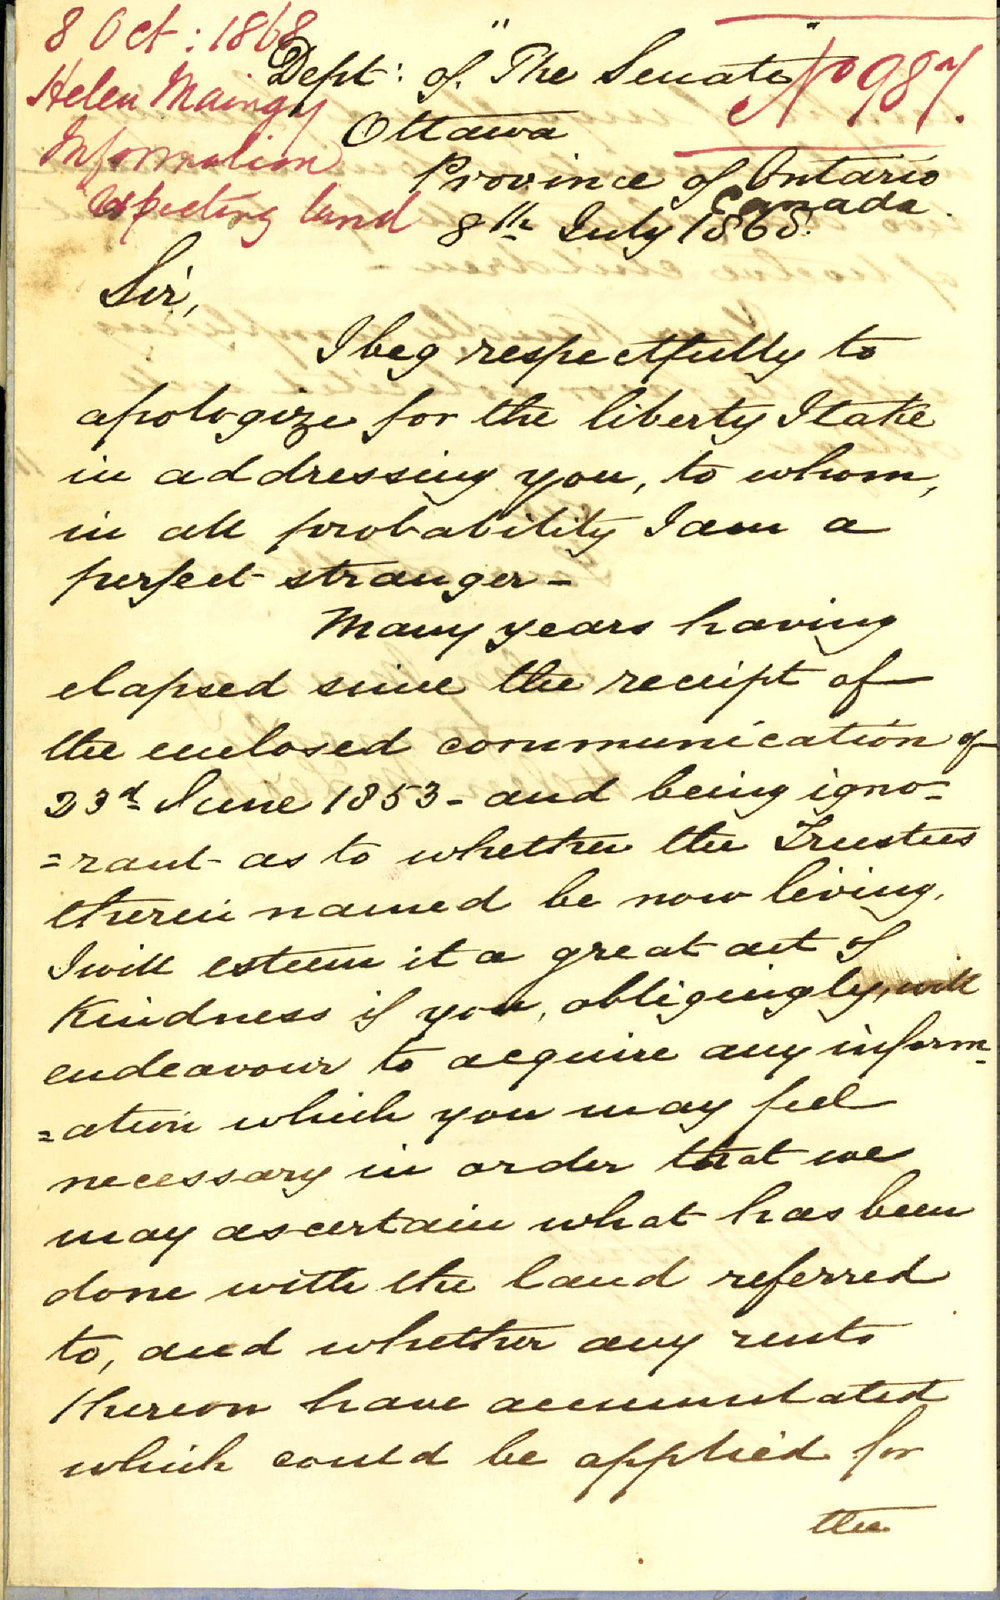 8 Oct: 1868
Helen Maingy
Information
respecting land
No 987.
Dept: of "The Senate"
Ottawa
Province of Ontario
Canada.
8th July 1868.
Sir,
I beg respectfully to
apologize for the liberty I take
in addressing you, to whom,
in all probability I am a
perfect stranger -
Many years having
elapsed since the receipt of
the enclosed communication of
23d June 1853 - and being igno=
=rant as to whether the Trustees
therein named be now living,
I will esteem it a great act of
Kindness if you, obligingly, will
endeavour to acquire any inform=
=ation which you may feel
necessary in order that we
may ascertain what has been
done with the land referred
to, and whether any rents
thereon have accumulated
which could be applied for
the